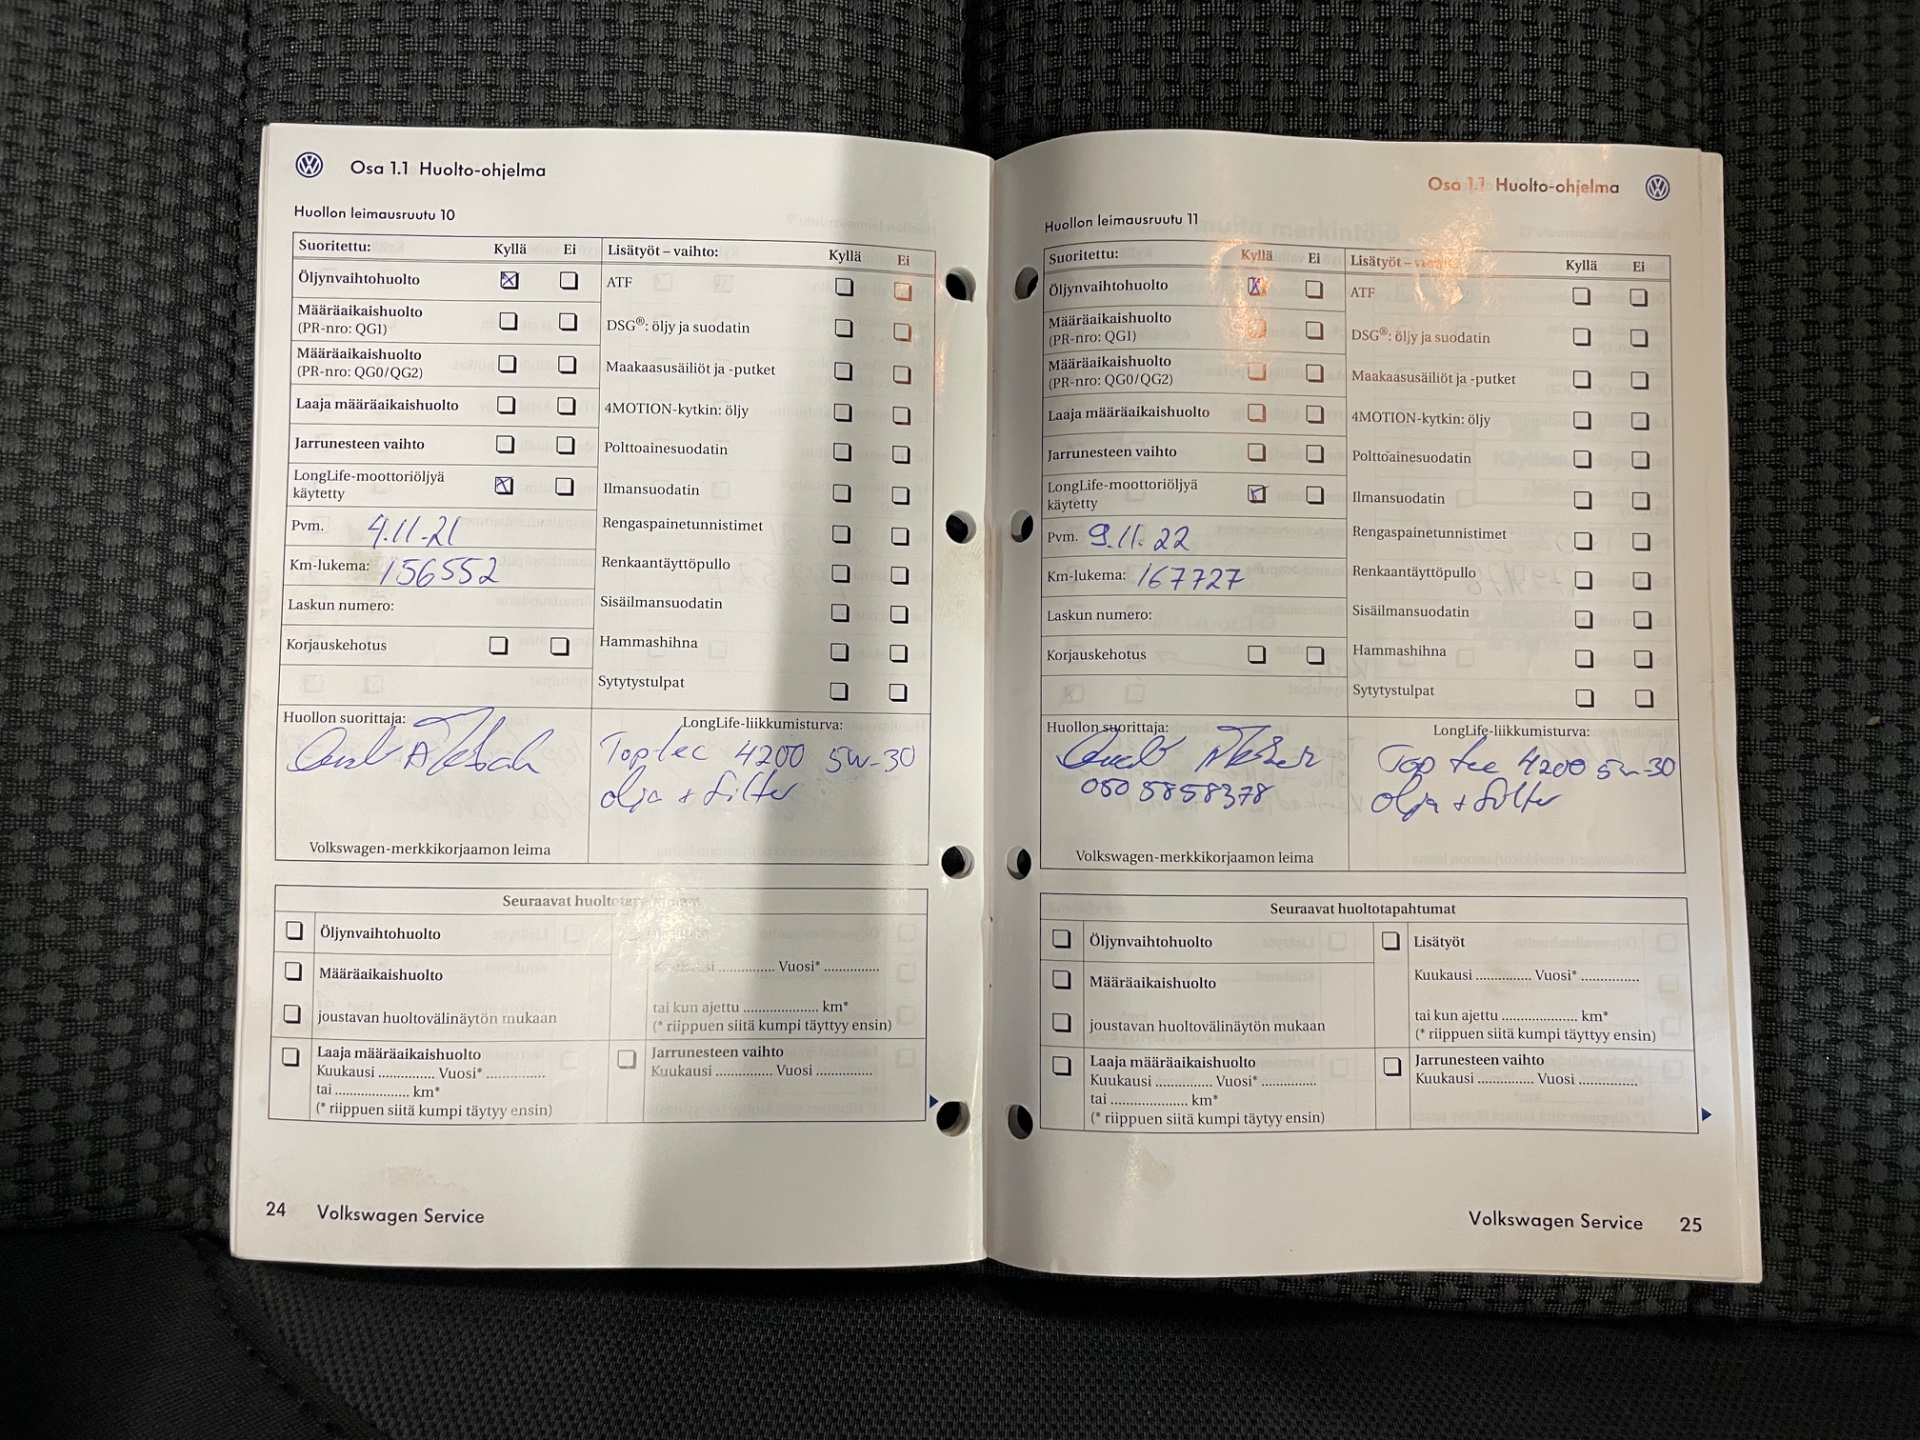 Osa 1.1 Huolto-ohjelma
Huollon leimausruutu 10
Suoritettu: Kyllä Ei
Öljynvaihtohuolto
Määräaikaishuolto
(PR-nro: QG1)
Määräaikaishuolto
(PR-nro: QG0/QG2)
Laaja määräaikaishuolto
Jarrunesteen vaihto
LongLife-moottoriöljyä
käytetty
Pvm. 4.11.21
Km-lukema: 156552
Laskun numero:
Korjauskehotus
Lisätyöt – vaihto: Kyllä Ei
ATF
DSG®: öljy ja suodatin
Maakaasusäiliöt ja -putket
4MOTION-kytkin: öljy
Polttoainesuodatin
Ilmansuodatin
Rengaspainetunnistimet
Renkaantäyttöpullo
Sisäilmansuodatin
Hammashihna
Sytytystulpat
Huollon suorittaja:
Volkswagen-merkkikorjaamon leima
LongLife-liikkumisturva:
Toptec 4200 5w-30
olja + filter
Seuraavat huoltotapahtumat
Öljynvaihtohuolto
Määräaikaishuolto
joustavan huoltovälinäytön mukaan
Laaja määräaikaishuolto
Kuukausi .............. Vuosi* ..............
tai ................... km*
(* riippuen siitä kumpi täytyy ensin)
Kuukausi .............. Vuosi* ..............
tai kun ajettu ................... km*
(* riippuen siitä kumpi täyttyy ensin)
Jarrunesteen vaihto
Kuukausi .............. Vuosi ..............
24 Volkswagen Service
Osa 1.1 Huolto-ohjelma
Huollon leimausruutu 11
Suoritettu: Kyllä Ei
Öljynvaihtohuolto
Määräaikaishuolto
(PR-nro: QG1)
Määräaikaishuolto
(PR-nro: QG0/QG2)
Laaja määräaikaishuolto
Jarrunesteen vaihto
LongLife-moottoriöljyä
käytetty
Pvm. 9.11.22
Km-lukema: 167727
Laskun numero:
Korjauskehotus
Lisätyöt – vaihto: Kyllä Ei
ATF
DSG®: öljy ja suodatin
Maakaasusäiliöt ja -putket
4MOTION-kytkin: öljy
Polttoainesuodatin
Ilmansuodatin
Rengaspainetunnistimet
Renkaantäyttöpullo
Sisäilmansuodatin
Hammashihna
Sytytystulpat
Huollon suorittaja:
050 5858378
Volkswagen-merkkikorjaamon leima
LongLife-liikkumisturva:
Top tec 4200 5w-30
olja + filter
Seuraavat huoltotapahtumat
Öljynvaihtohuolto
Määräaikaishuolto
joustavan huoltovälinäytön mukaan
Laaja määräaikaishuolto
Kuukausi .............. Vuosi* ..............
tai ................... km*
(* riippuen siitä kumpi täytyy ensin)
Lisätyöt
Kuukausi .............. Vuosi* ..............
tai kun ajettu ................... km*
(* riippuen siitä kumpi täyttyy ensin)
Jarrunesteen vaihto
Kuukausi .............. Vuosi ..............
Volkswagen Service 25